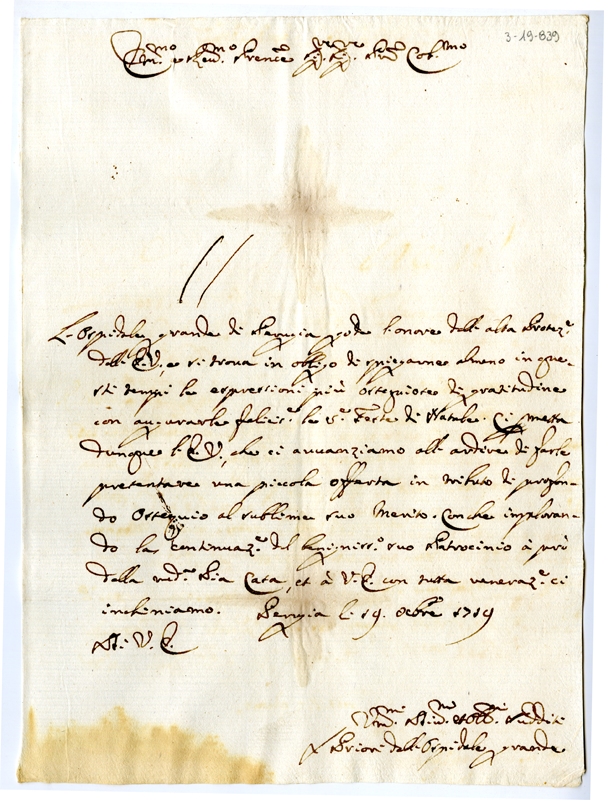 3-19-839
Em.mo e Rev.mo Prencipe
L'Ospidale grande di Perugia gode l'onore dell'alta Protez.e
dell'E.V., e si trova in obligo di spiegarne almeno in que-
sti tempi le espressioni più ossequiose di gratitudine
con augurarle felicis.e le S.e Feste di Natale. Ci metta
dunque l'E.V., che ci avvanziamo all'ardire di farle
presentare una piccola offerta in tributo di profon-
do Ossequio al sublime suo Merito. Con che imploran-
do la continuaz.e del benigniss.o suo Patrocinio à prò
della Pia Casa, et à V.E. con tutta veneraz.e ci
inchiniamo. Perugia li 19. 1719
Di V.E.
Sudditi
Priori dell'Ospidale grande